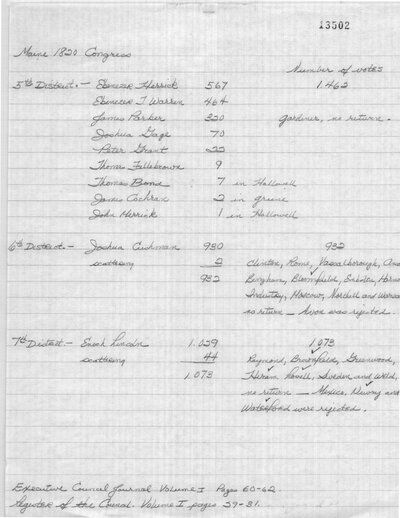 13502
Maine 1820 Congress
Number of votes
5th District. - Ebenezer Herrick 567 1.462
Ebenezer T Warren 464
James Parker 320 Gardiner, no return.
Joshua Gage 70
Peter Grant 22
Thomas Fillebrown 9
Thomas Bond 7 in Hallowell
James Cochran 2 in Greene
John Merrick 1 in Hallowell
6th District. - Joshua Cushman 930 932
scattering 2 Clinton, Rome, Vassalborough,
932 Bingham, Bloomfield,
Industry, Moscow, Norridge and Warsaw
no return - Avon was rejected.
7th District - Enoch Lincoln 1.029 1.073
scattering 44 Raymond, Brownfield, Greenwood,
1.073 Hiram, Lovell, Sweden and Weld,
no return - Mexico, Newry and
Waterford were rejected.
Executive Council Journal Volume I Pages 60-62
Register of the Council. Volume I pages 29-31.